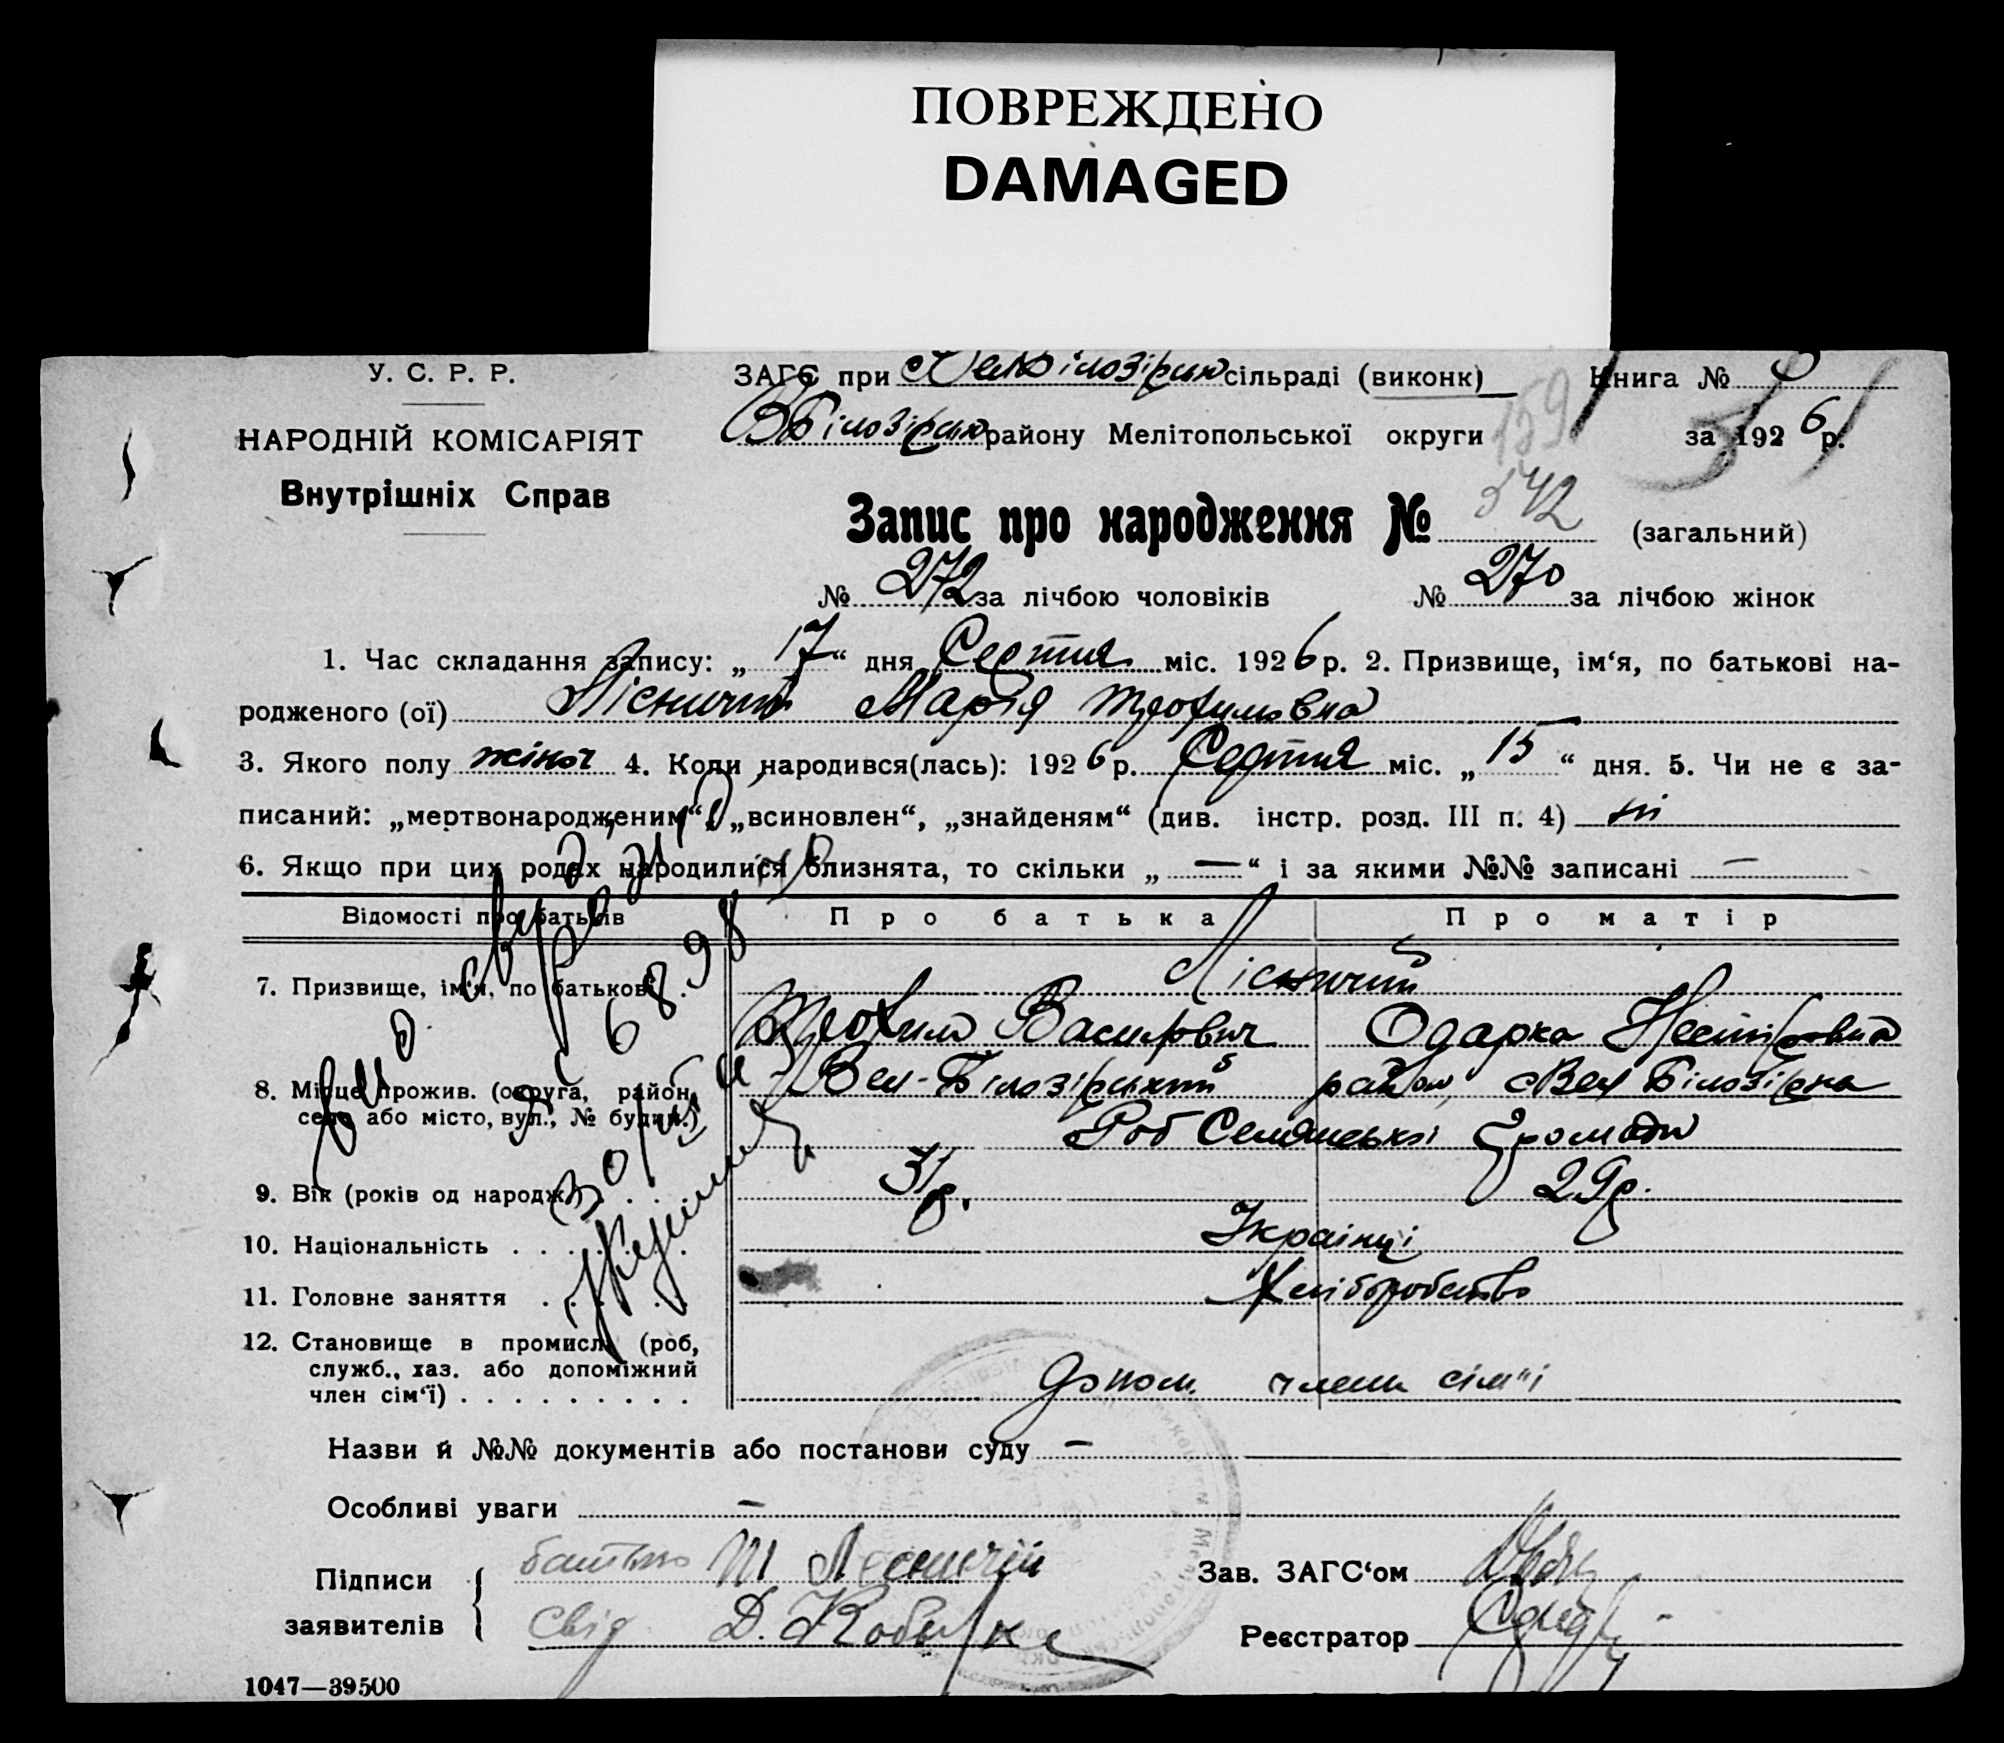 ПОВРЕЖДЕНО
DAMAGED
У. С. Р. Р.
НАРОДНІЙ КОМІСАРІЯТ
Внутрішніх Справ
ЗАГС при Вел Білозірськ сільраді (виконк) Книга №
В Білозірськ району Мелітопольської округи 159 за 1926 р.
Запис про народження № 542 (загальний)
№ 272 за лічбою чоловіків № 270 за лічбою жінок
1. Час складання запису: „ 17 “ дня Септня міс. 1926 р. 2. Призвище, ім‘я, по батькові на-
родженого (ої) Лісничий Марія Трохимовна
3. Якого полу жіноч 4. Коли народився(лась): 1926 р. Септня міс. „ 15 “ дня. 5. Чи не є за-
писаний: „мертвонародженим“, „всиновлен“, „знайденям“ (див. інстр. розд. III п. 4) ні
6. Якщо при цих родах народилися близнята, то скільки „ — “ і за якими №№ записані —
Відомості про батьків Про батька Про матір
7. Призвище, ім‘я, по батькові Лісничий
Трохим Васильович Одарка Несторовна
8. Місце прожив. (округа, район, Вел-Білозірський район, с Вел Білозірка
село або місто, вул., № будин.) Громади
9. Вік (років од народж.) 31 р. 29 р.
10. Національність Українці
11. Головне заняття Хліборобство
12. Становище в промислі (роб,
служб., хаз. або допоміжний
член сім‘ї) Допом. члени сім"ї
Назви й №№ документів або постанови суду —
Особливі уваги —
Підписи батько Т Лесничій Зав. ЗАГС‘ом
заявителів свід Д. Реєстратор
1047—39500